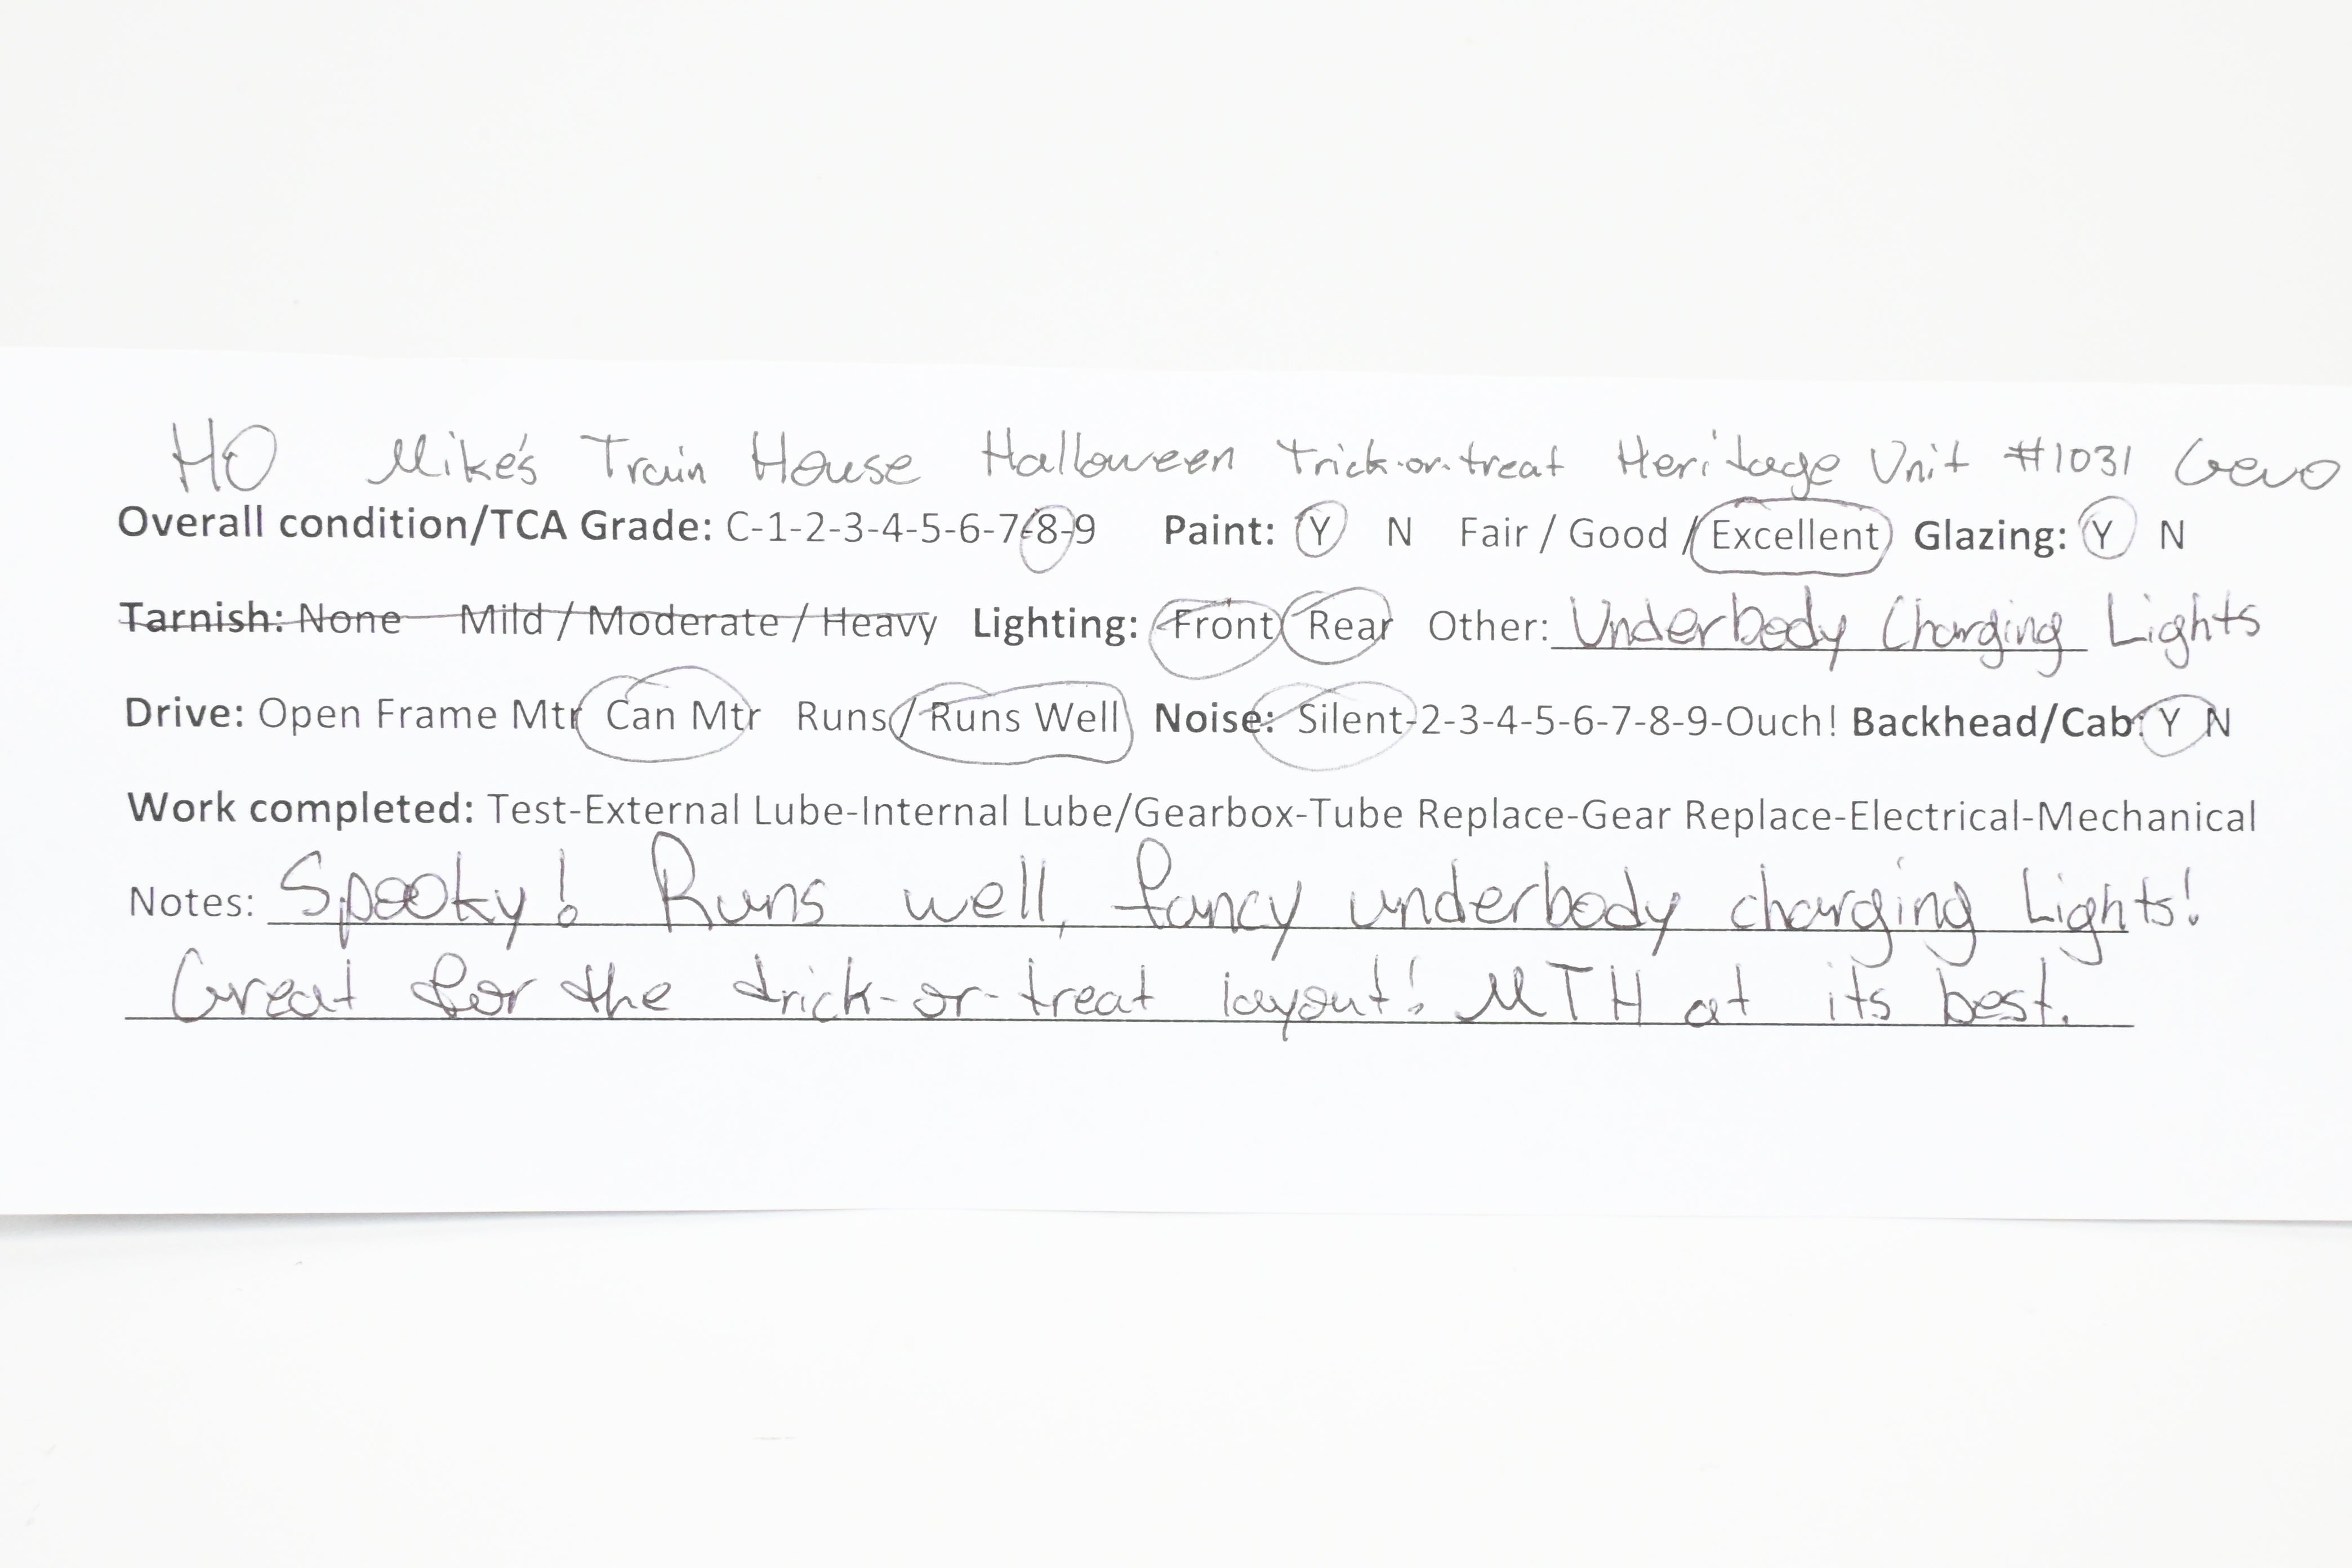 HO Mike's Train House Halloween trick-or-treat Heritage Unit #1031 Gevo
Overall condition/TCA Grade: C-1-2-3-4-5-6-7-8-9 Paint: Y N Fair / Good / Excellent Glazing: Y N
Tarnish: None Mild / Moderate / Heavy Lighting: Front Rear Other: Underbody Charging Lights
Drive: Open Frame Mtr Can Mtr Runs / Runs Well Noise: Silent-2-3-4-5-6-7-8-9-Ouch! Backhead/Cab: Y N
Work completed: Test-External Lube-Internal Lube/Gearbox-Tube Replace-Gear Replace-Electrical-Mechanical
Notes: Spooky! Runs well, fancy underbody charging Lights!
Great for the trick-or-treat layout! MTH at its best.